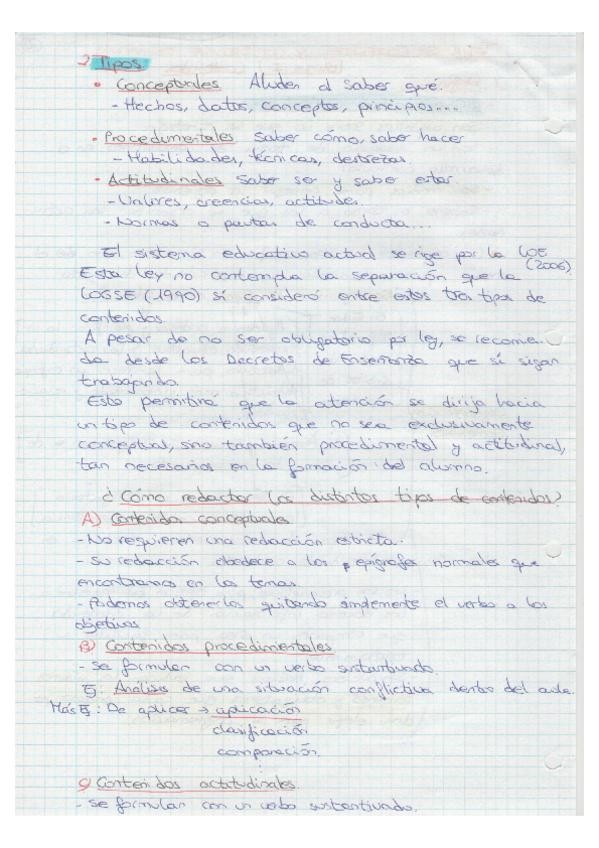 2 Tipos
• Conceptuales Aluden al saber qué.
- Hechos, datos, conceptos, principios...
• Procedimentales Saber cómo, saber hacer
- Habilidades, técnicas, destrezas.
• Actitudinales Saber ser y saber estar.
- Valores, creencias, actitudes.
- Normas o pautas de conducta...
El sistema educativo actual se rige por la LOE (2006)
Esta Ley no contempla la separación que la
LOGSE (1990) sí consideró entre estos tres tipos de
contenidos.
A pesar de no ser obligatorio por ley, se recomien-
da desde los Decretos de Enseñanza que sí sigan
trabajando.
Esto permitirá que la atención se dirija hacia
un tipo de contenidos que no sea exclusivamente
conceptual, sino también procedimental y actitudinal,
tan necesarios en la formación del alumno.
¿Cómo redactar los distintos tipos de contenidos?
A) Contenidos conceptuales
- No requieren una redacción estricta.
- Su redacción obedece a los epígrafes normales que
encontramos en los temas.
- Podemos obtenerlos quitando simplemente el verbo a los
objetivos
B) Contenidos procedimentales
- Se formulan con un verbo sustantivado.
Ej: Análisis de una situación conflictiva dentro del aula.
Más Ej: De aplicar → aplicación
clasificación
comparación.
⋮
C) Contenidos actitudinales
- Se formulan con un verbo sustantivado.